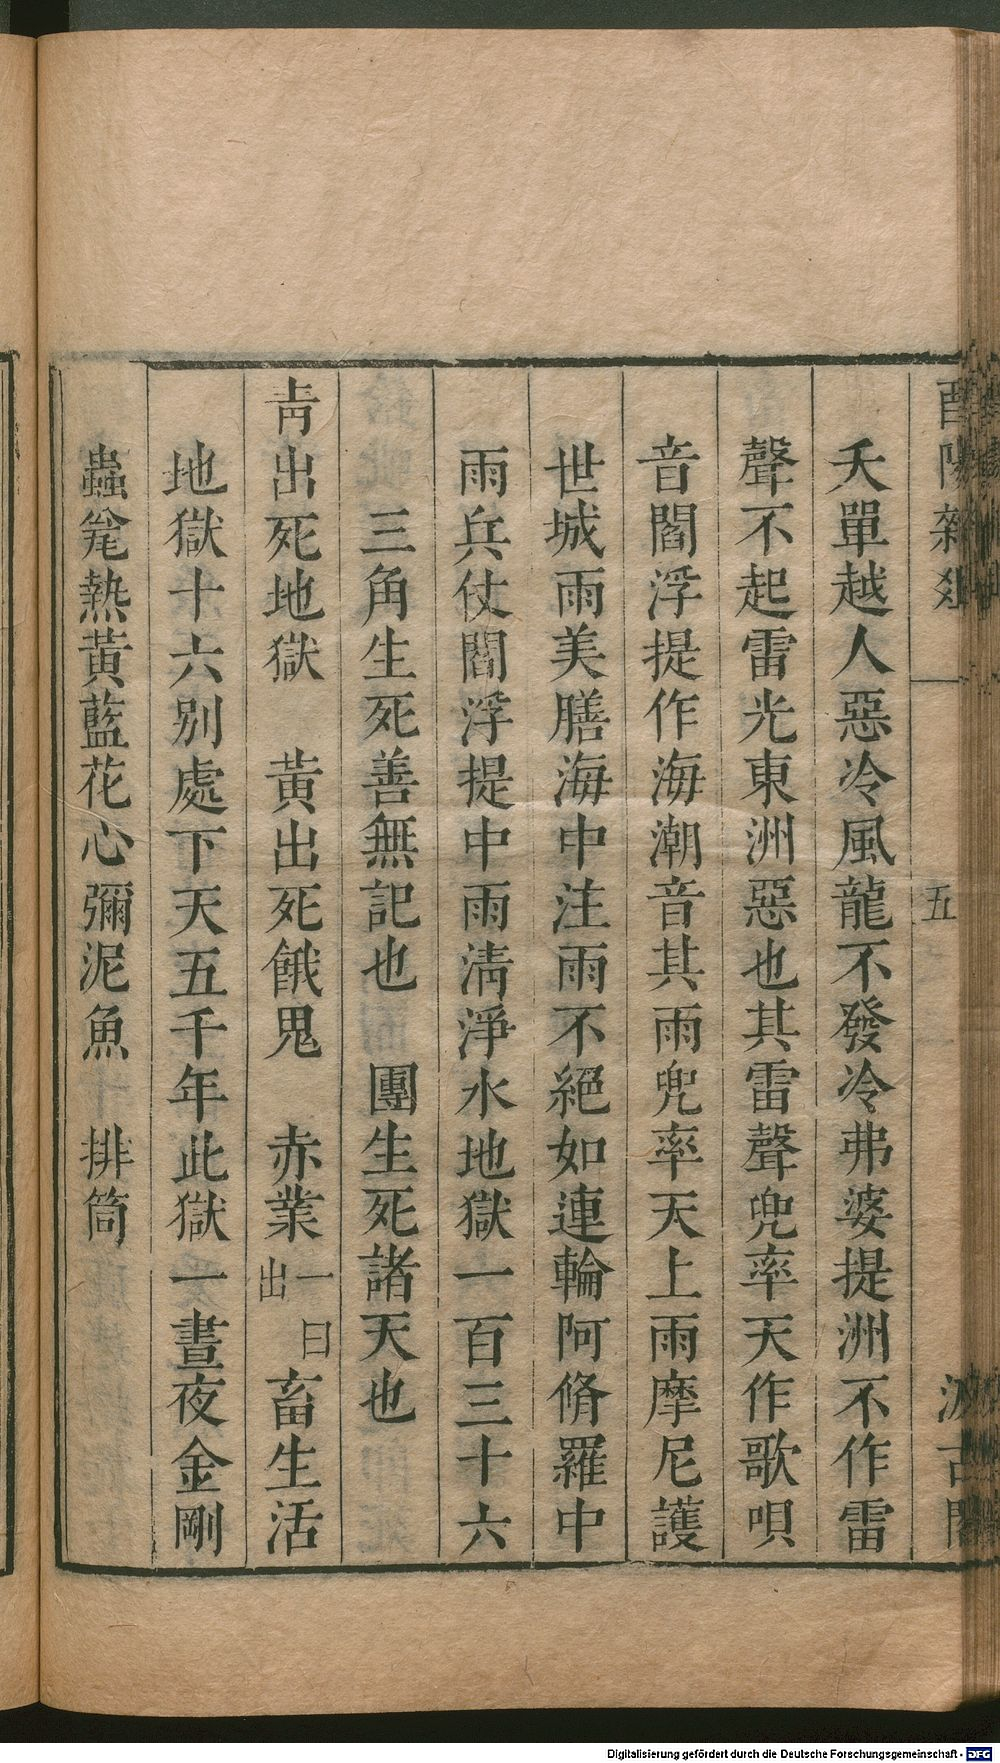 酉陽雜俎 五 汲古閣
夭單越人惡冷風龍不發冷弗婆提洲不作雷
聲不起雷光東洲惡也其雷聲兜率天作歌唄
音閻浮提作海潮音其雨兜率天上雨摩尼護
世城雨美膳海中注雨不絕如連輪阿脩羅中
雨兵仗閻浮提中雨淸淨水地獄一百三十六
三角生死善無記也 團生死諸天也
靑出死地獄 黃出死餓鬼 赤業一曰出畜生活
地獄十六別處下天五千年此獄一晝夜金剛
蟲㲋熱黃藍花心彌泥魚 排筒
Digitalisierung gefördert durch die Deutsche Forschungsgemeinschaft - DFG